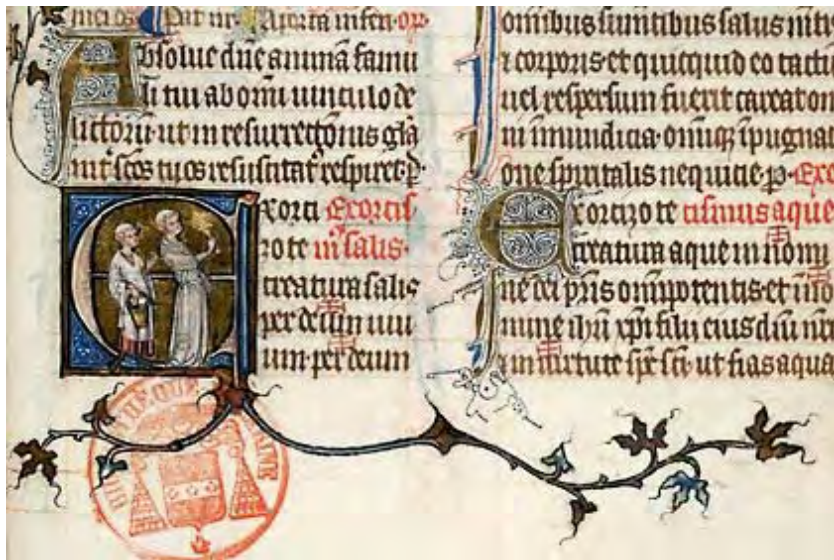 Absolue dūe animā famu
li tui ab om̄i uinculo de
lictorū ut in resurrectionis glā
int̄ scōs tuos resuscitat᷒ respiret. p̄
Exorci Exorcis
zo te m᷒ salis.
creatura salis
per deum uiu
um. per deum
omnibus sumentibus salus mētis
⁊ corporis et quicquid eo tactū
uel respersum fuerit careat om
ni īmundicia. omīq; īpugnati
one spiritalis nequitie. p̄. Exor
Exorcizo te cismus aque
creatura aque in nomi
ne dei pr̄is om̄ipotentis. et in no
mine ih̄u xp̄i filii eius dn̄i nr̄i
⁊ in uirtute sp̄s sc̄i. ut fias aqua